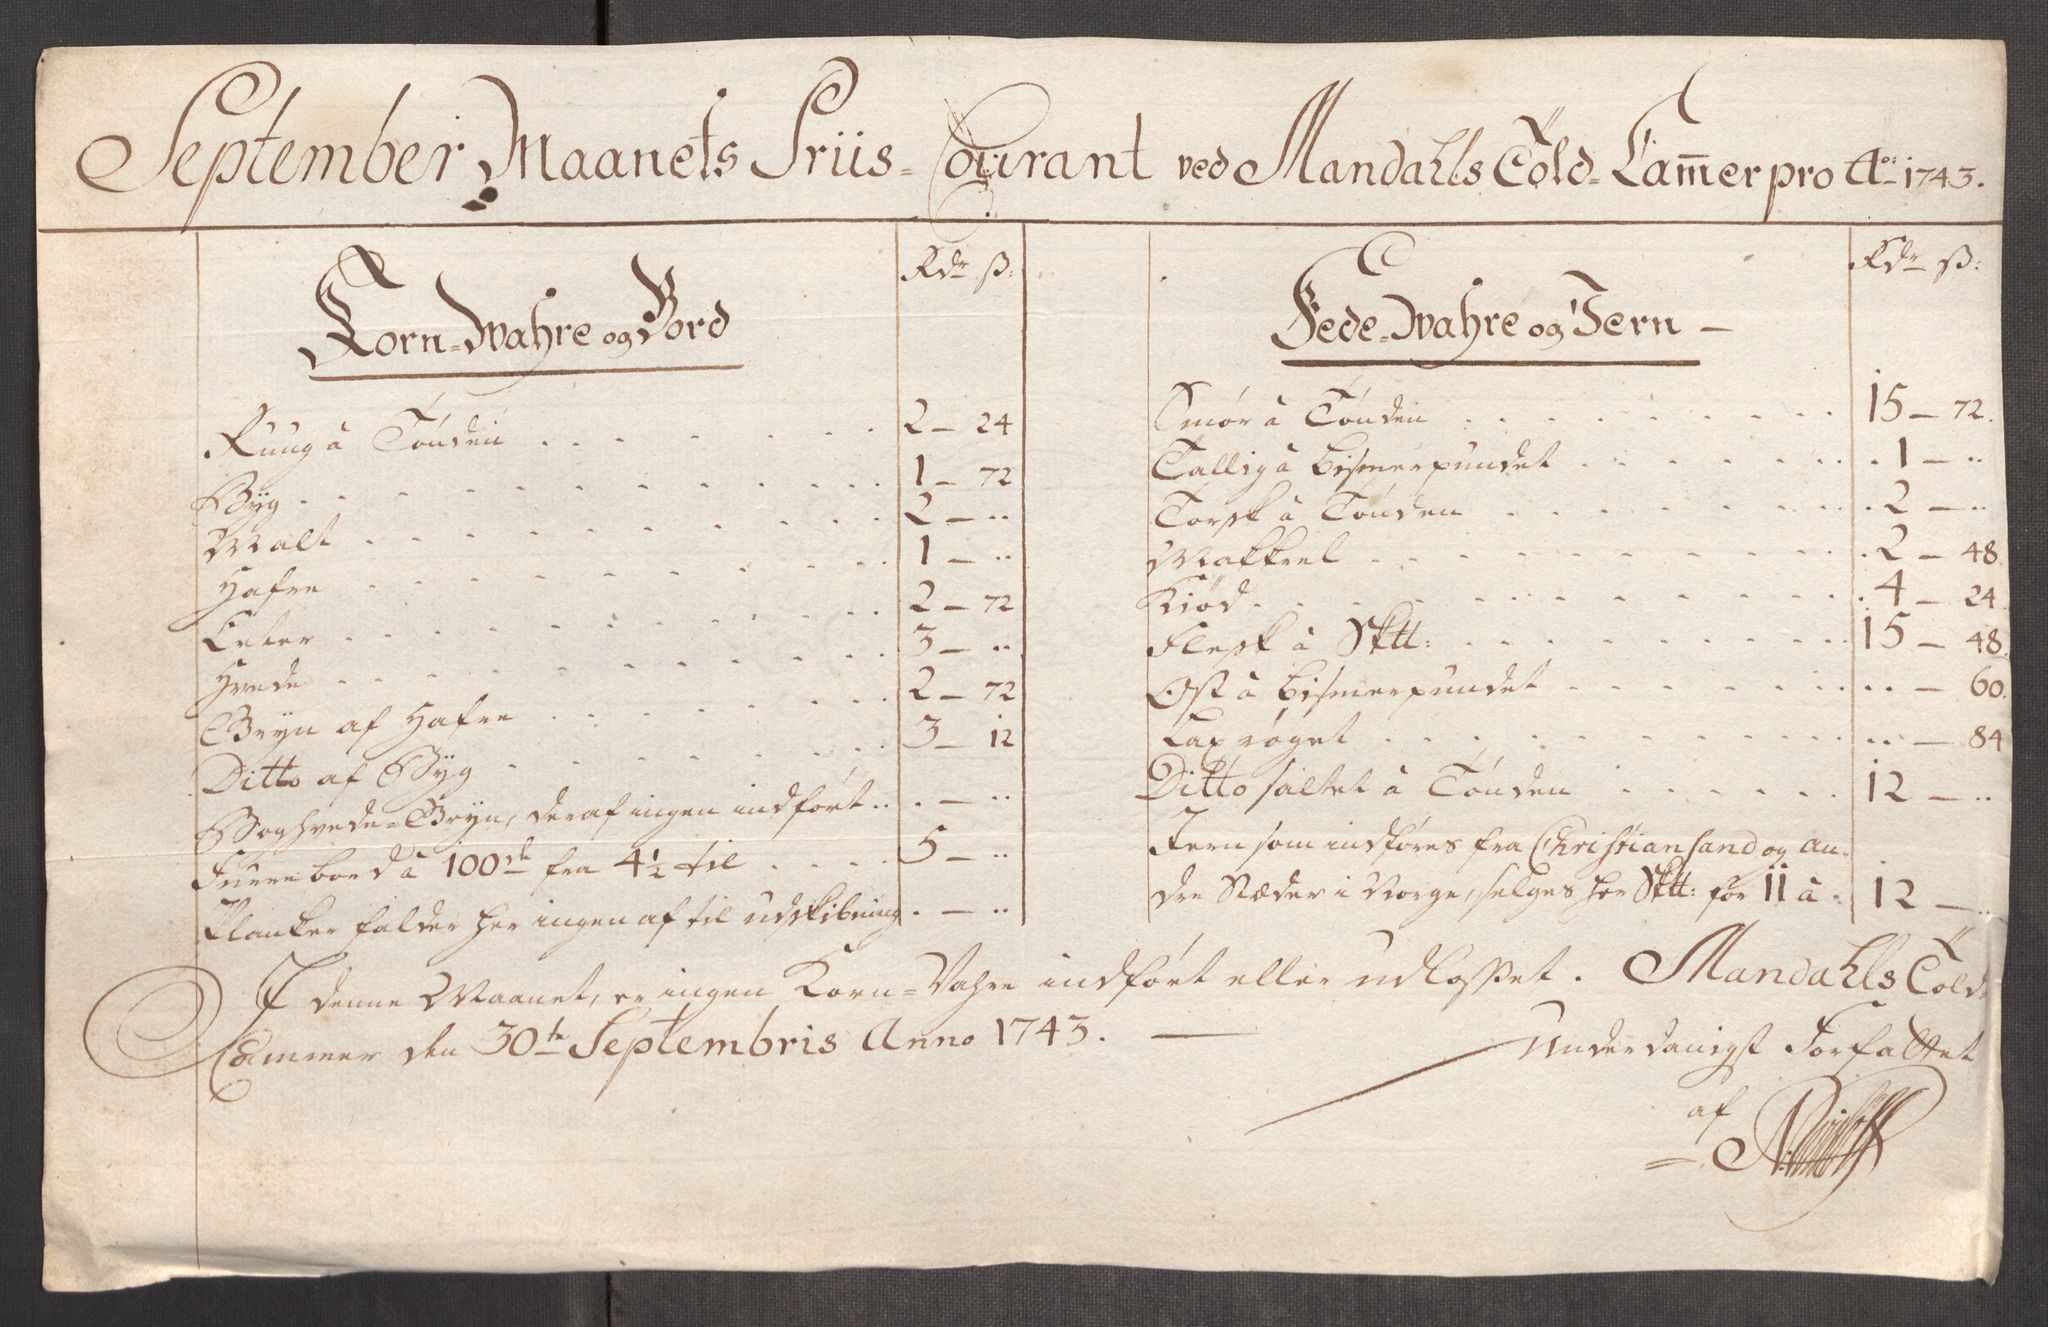 September Maanets Priis-Courant ved Mandahls Told-Cam̅er pro Ao: 1743.
Rdr ß:
Korn-Wahre og Bord
Ruug â Tønden 2 – 24
Byg 1 – 72
Malt 2 – ..
Hafre 1 – ..
Erter 2 – 72
Hvede 3 – ..
Gryn af Hafre 2 – 72
Ditto af Byg 3 – 12
Boghvede-Gryn, deraf ingen indført . – ..
Furre bord â 100de fra 4½ til 5 – ..
Planker falder her ingen af til udskibning . – ..
Rdr ß:
Fede-Wahre og Jern –
Smør â Tønden 15 – 72.
Tallig â Bismerpundet 1 – ..
Torsk â Tønden 2 – ..
Makkrel 2 – 48
Kiød 4 – 24
Flesk â Sktt: 15 – 48.
Ost â Bismerpundet .. – 60.
Lax røget .. – 84
Ditto saltet â Tønden 12 – ..
Jern som indføres fra Christiansand og an-
dre Stæder i Norge, selges her Sktt: for 11 â 12 – ..
I denne Maanet, er ingen Korn-Vahre indført eller udlosset. Mandahls Told-
Cammer den 30te Septembris Anno 1743.
Underdanigst Forfattet
af